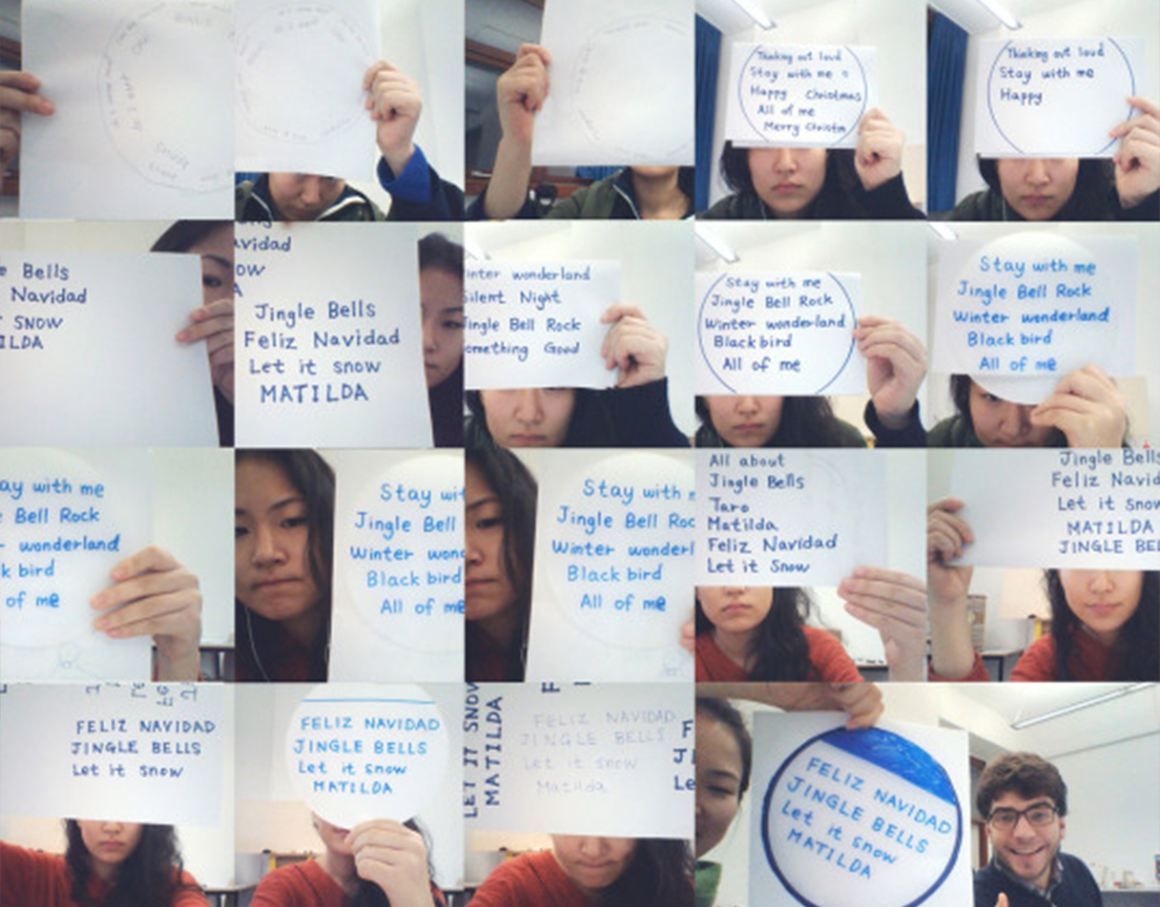 Thinking out loud
Stay with me
Happy Christmas
All of me
Merry Christm
Thinking out loud
Stay with me
Happy
e Bells
Navidad
SNOW
ILDA
avidad
ow
A
Jingle Bells
Feliz Navidad
Let it snow
MATILDA
inter wonderland
Silent Night
ingle Bell Rock
omething Good
Stay with me
Jingle Bell Rock
Winter wonderland
Blackbird
All of me
Stay with me
Jingle Bell Rock
Winter wonderland
Black bird
All of me
ay with me
Bell Rock
wonderland
k bird
of me
Stay wit
Jingle Bell
Winter won
Black bird
All of me
Stay with
Jingle Bell Roc
Winter wonderl
Black bird
All of me
All about
Jingle Bells
Taro
Matilda
Feliz Navidad
Let it Snow
Jingle Bells
Feliz Navid
Let it Snow
MATILDA
JINGLE BEL
FELIZ NAVIDAD
JINGLE BELLS
Let it snow
FELIZ NAVIDAD
JINGLE BELLS
Let it snow
MATILDA
LET IT SNOW
MATILDA
FELIZ NAVIDAD
JINGLE BELLS
Let it snow
Matilda
F
JI
Le
FELIZ NAVIDAD
JINGLE BELLS
Let it snow
MATILDA